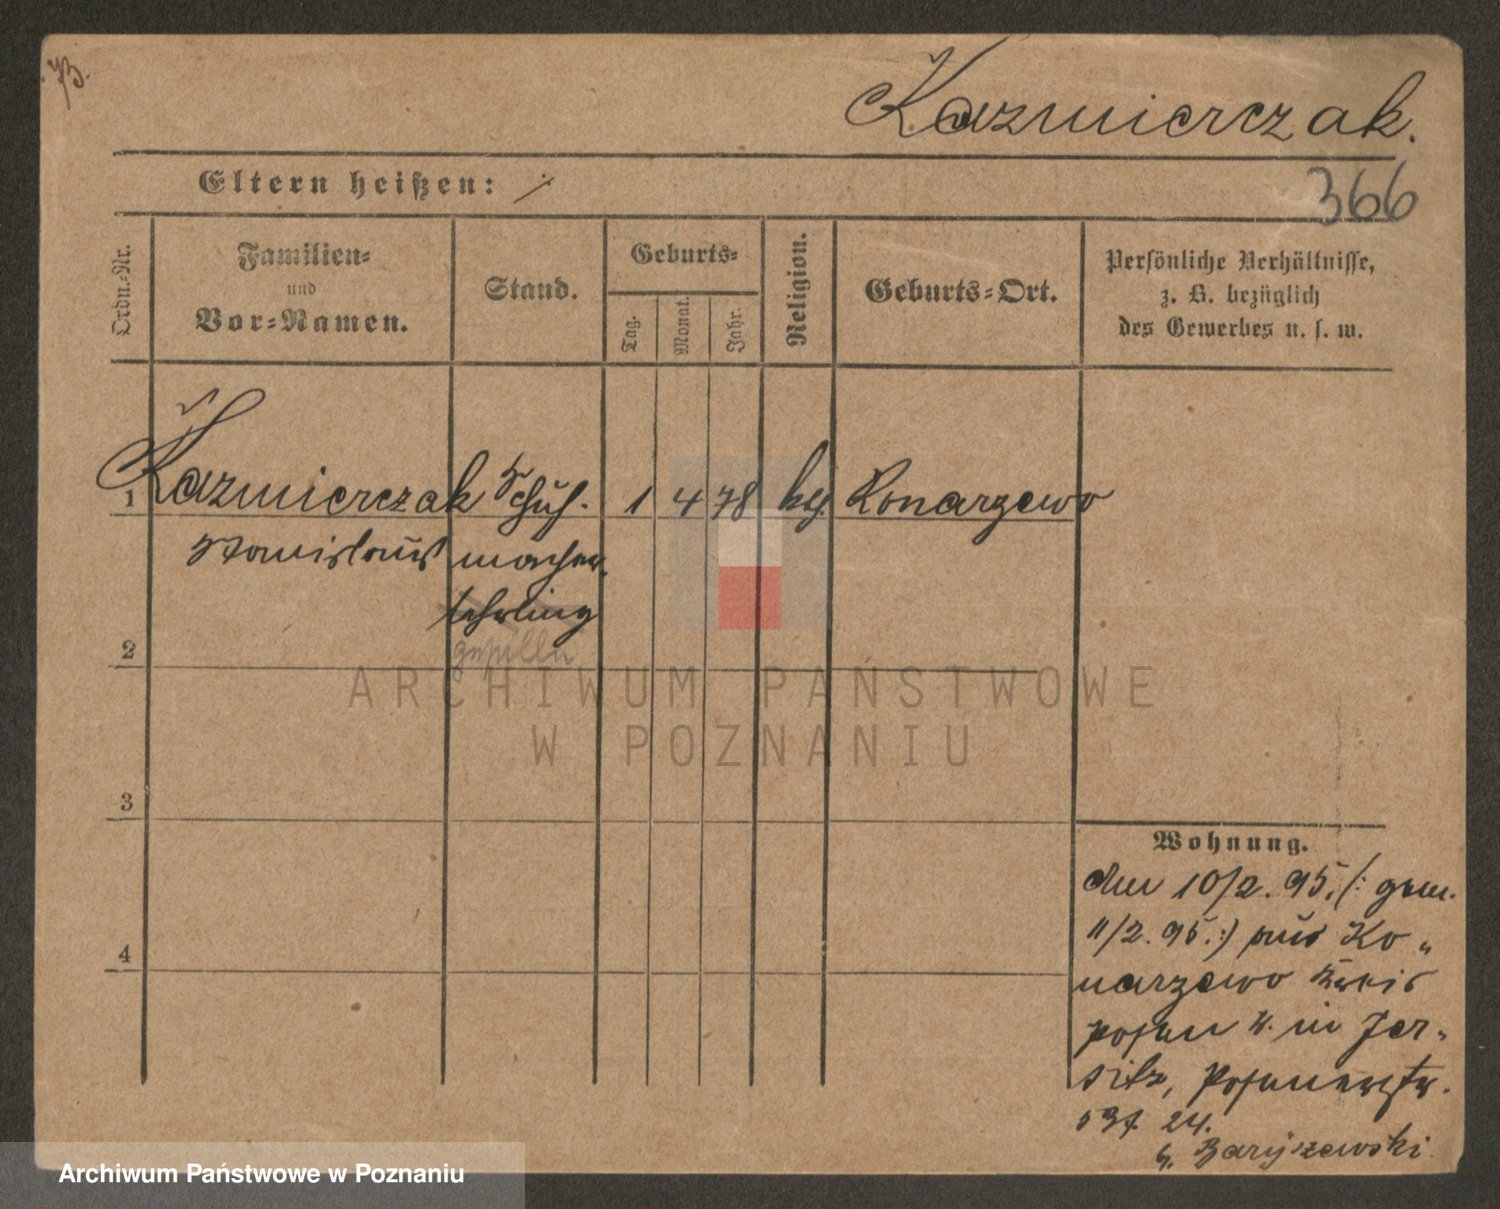 73.
Kazmierczak.
366
Eltern heißen: ./.
Ordn.-Nr.
Familien-
und
Vor-Namen.
Stand.
Geburts-
Tag.
Monat.
Jahr.
Religion.
Geburts-Ort.
Persönliche Verhältnisse,
z. B. bezüglich
des Gewerbes u. s. w.
1 Kazmierczak Schuh- 1 4 78 kth. Konarzewo
Stanislaus macher
lehrling
2 geselle
3
4
ARCHIWUM PAŃSTWOWE
W POZNANIU
Wohnung.
Am 10/2. 95. (: gem.
11/2. 95. :) aus Ko-
narzewo Kreis
Posen W. in Jer-
sitz, Posenerstr.
24.
b. Baryszewski.
Archiwum Państwowe w Poznaniu